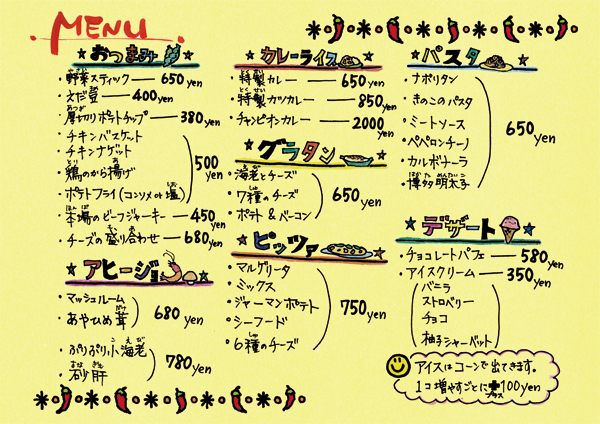 MENU
おつまみ
・野菜スティック — 650yen
・えだ豆 — 400yen
・厚切りポテトチップ — 380yen
・チキンバスケット
・チキンナゲット
・鶏のから揚げ
・ポテトフライ(コンソメor塩)
500yen
・本場のビーフジャーキー — 450yen
・チーズの盛り合わせ — 680yen
アヒージョ
・マッシュルーム
・あやひめ茸
680yen
・ぷりぷり小海老
・砂肝
780yen
カレーライス
・特製カレー — 650yen
・特製カツカレー — 850yen
・チャンピオンカレー — 2000yen
グラタン
・海老とチーズ
・7種のチーズ
・ポテト&ベーコン
650yen
ピッツァ
・マルゲリータ
・ミックス
・ジャーマンポテト
・シーフード
・6種のチーズ
750yen
パスタ
・ナポリタン
・きのこのパスタ
・ミートソース
・ペペロンチーノ
・カルボナーラ
・博多明太子
650yen
デザート
・チョコレートパフェ — 580yen
・アイスクリーム — 350yen
バニラ
ストロベリー
チョコ
柚子シャーベット
アイスはコーンで出てきます。
1コ増やすごとに+100yen
プラス